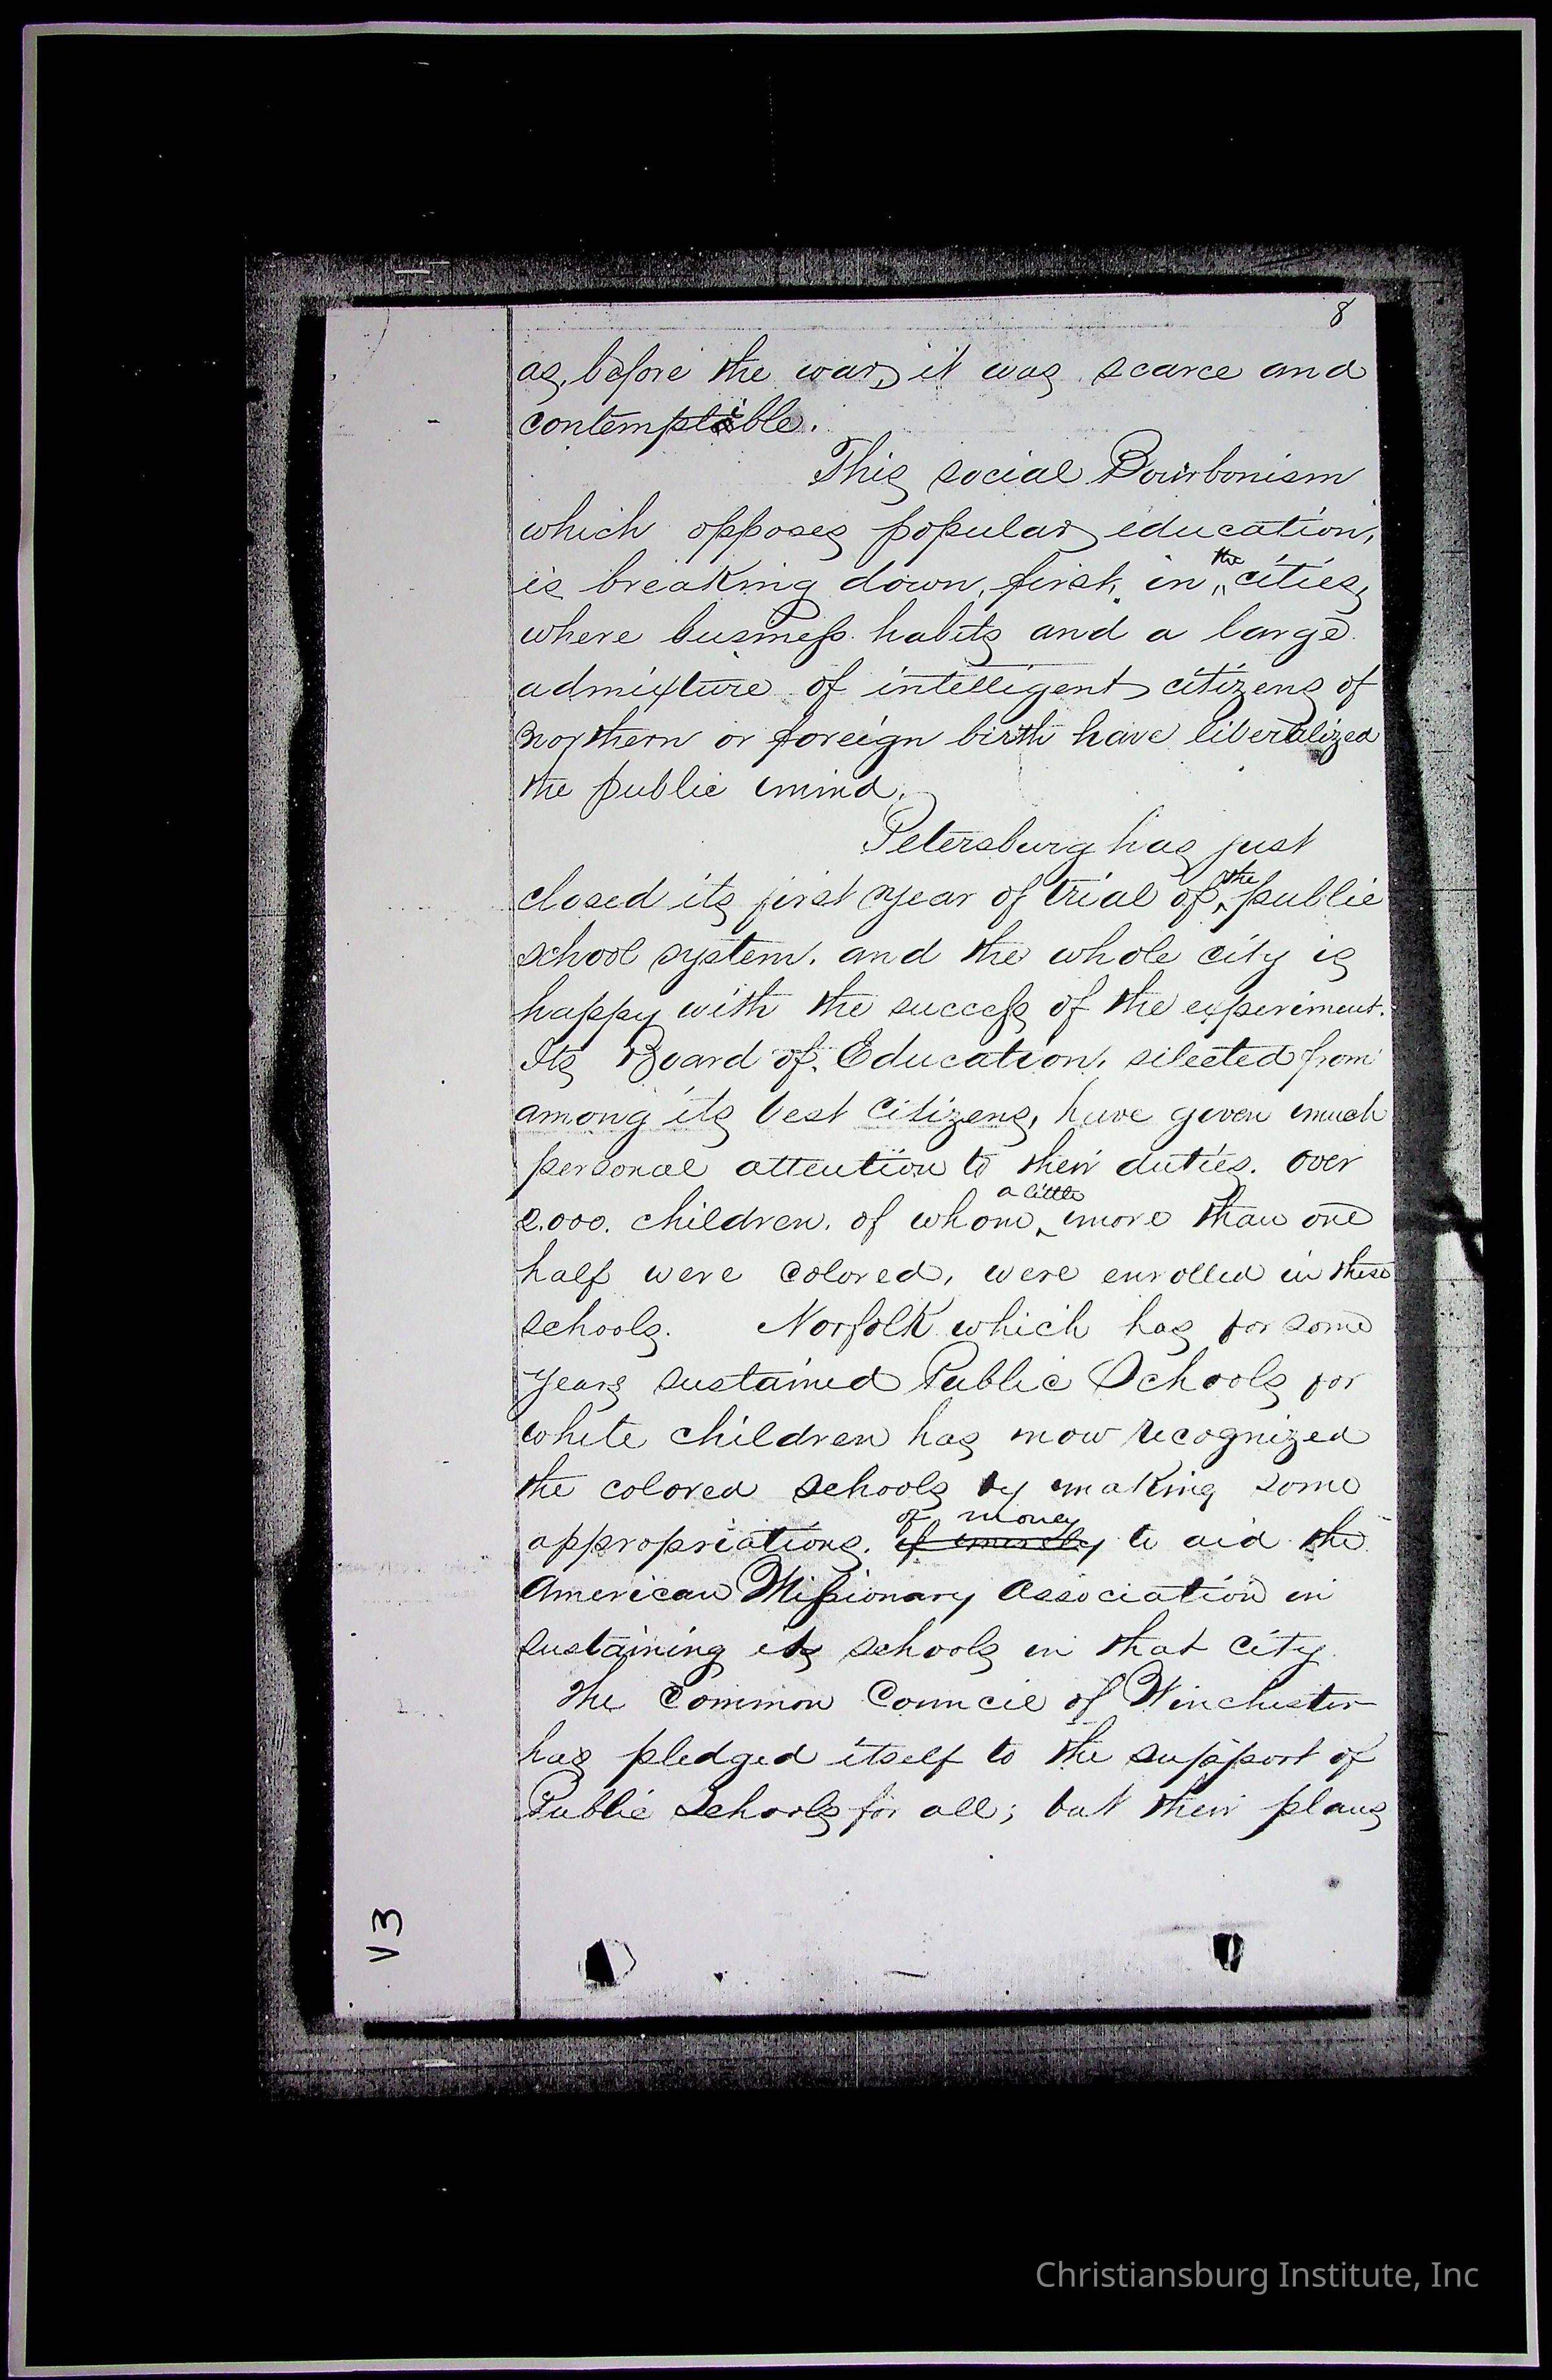 8
as, before the war, it was scarce and
contemptible.
This social Bourbonism
which opposes popular education,
is breaking down, first, in the cities,
where business habits and a large
admixture of intelligent citizens of
northern or foreign birth have liberalized
the public mind.
Petersburg has just
closed its first year of trial of the public
school system, and the whole city is
happy with the success of the experiment.
Its Board of Education, selected from
among its best citizens, have given much
personal attention to their duties. Over
2.000. children, of whom a little more than one
half were colored, were enrolled in these
schools. Norfolk which has for some
years sustained Public Schools for
white children has now recognized
the colored schools by making some
of money
appropriations, if merely to aid the
American Missionary Association in
sustaining its schools in that city.
The Common Council of Winchester
has pledged itself to the support of
Public Schools for all; but their plans
V3
Christiansburg Institute, Inc